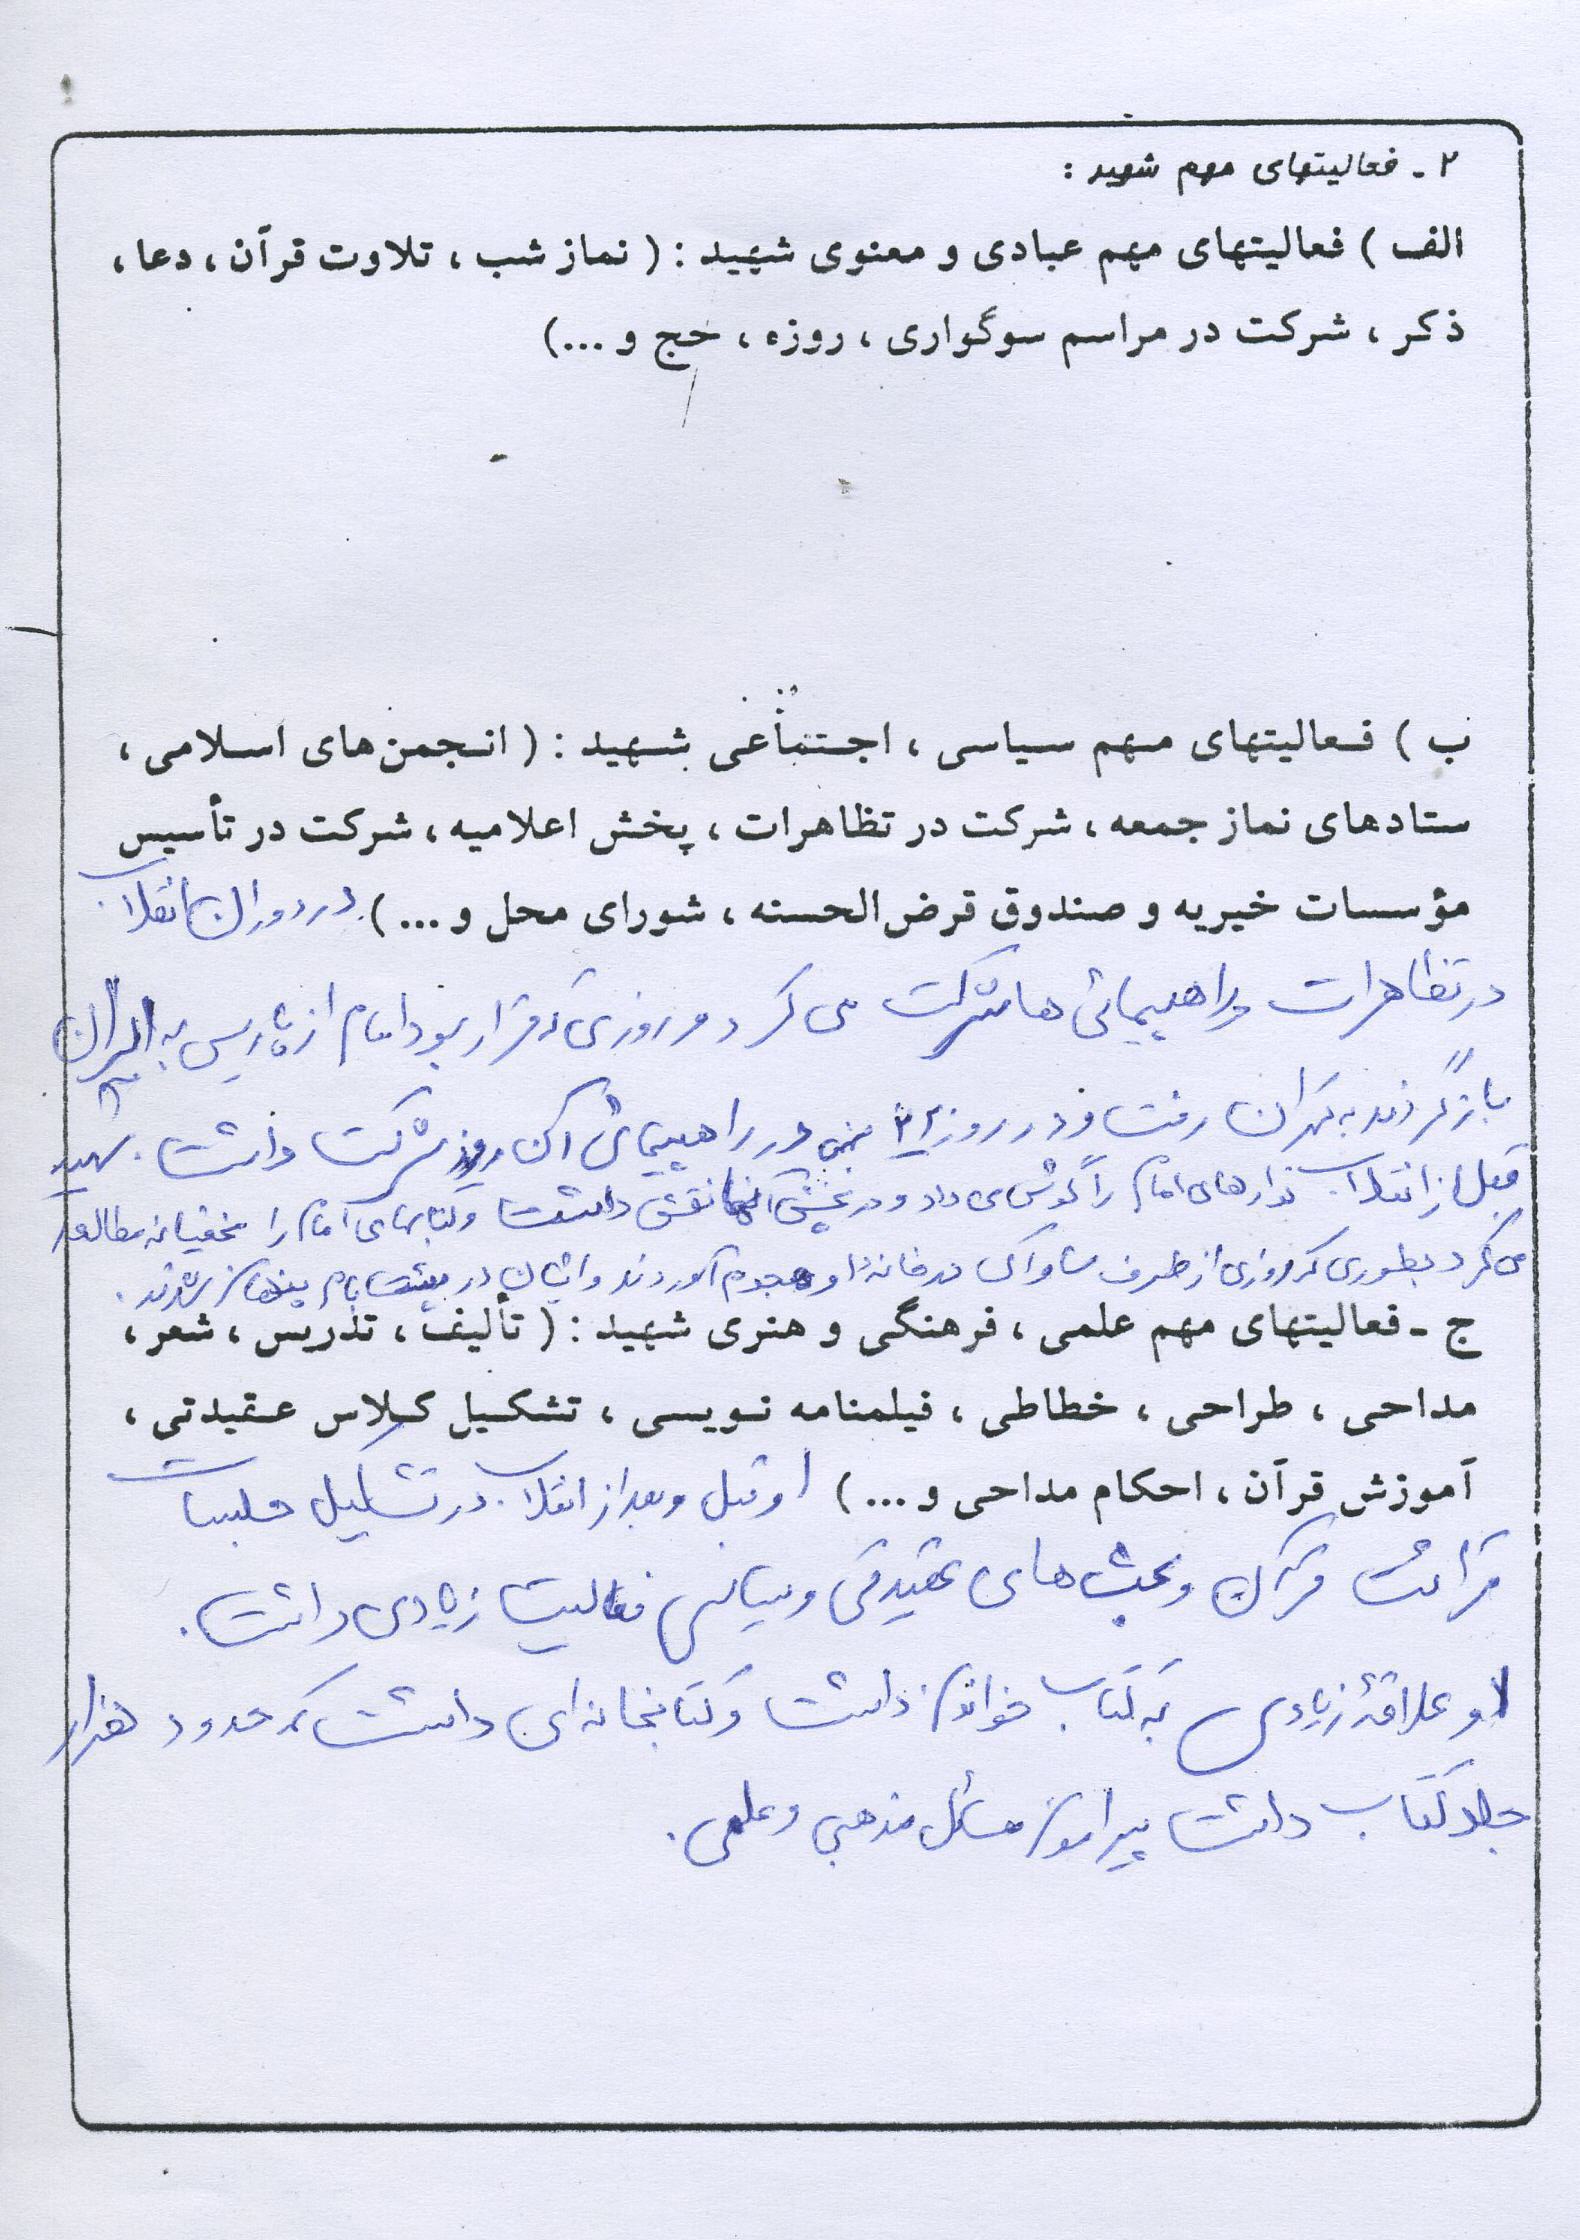 ۲ ـ فعالیتهای مهم شهید :
الف ) فعالیتهای مهم عبادی و معنوی شهید : ( نماز شب ، تلاوت قرآن ، دعا ،
ذکر ، شرکت در مراسم سوگواری ، روزه ، حج و ...)
ب ) فعالیتهای مهم سیاسی ، اجتماعی شهید : ( انجمن‌های اسلامی ،
ستادهای نماز جمعه ، شرکت در تظاهرات ، پخش اعلامیه ، شرکت در تأسیس
مؤسسات خیریه و صندوق قرض‌الحسنه ، شورای محل و ... ) در دوران انقلاب
در تظاهرات و راهپیمائی ها شرکت می کرد و روزی که قرار بود امام از پاریس به ایران
بازگردند به تهران رفت و در روز بهمن در راهپیمائی آن روز شرکت داشت . شهید
قبل از انقلاب نوارهای امام را گوش می داد و در پخش آنها نقش داشت و کتابهای امام را مخفیانه مطالعه
می کرد بطوری که روزی از طرف ساواک در خانه او هجوم آوردند و ایشان در پشت بام پنهان شدند .
ج ـ فعالیتهای مهم علمی ، فرهنگی و هنری شهید : ( تألیف ، تدریس ، شعر ،
مداحی ، طراحی ، خطاطی ، فیلمنامه نویسی ، تشکیل کلاس عقیدتی ،
آموزش قرآن ، احکام مداحی و ... ) او قبل و بعد از انقلاب در تشکیل جلسات
قرائت قرآن و بحث های عقیدتی و سیاسی فعالیت زیادی داشت .
او علاقهٔ زیادی به کتاب خواندن داشت و کتابخانه ای داشت که حدود هزار
جلد کتاب داشت پیرامون مسائل مذهبی و علمی .